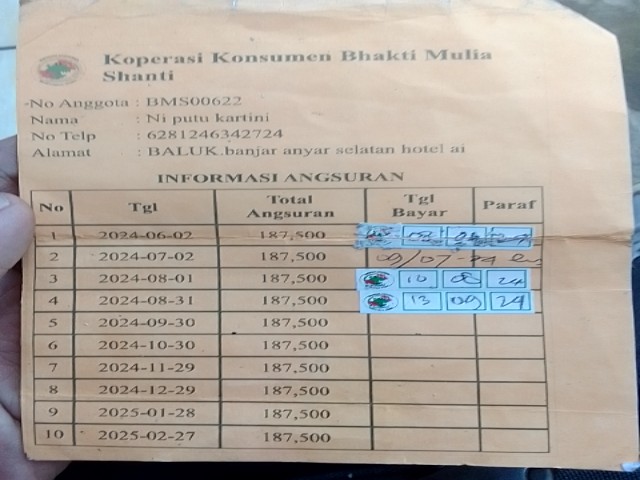 Koperasi Konsumen Bhakti Mulia
Shanti
No Anggota : BMS00622
Nama : Ni putu kartini
No Telp : 6281246342724
Alamat : BALUK.banjar anyar selatan hotel ai
INFORMASI ANGSURAN
No Tgl Total Angsuran Tgl Bayar Paraf
1 2024-06-02 187,500
2 2024-07-02 187,500 09/07-24
3 2024-08-01 187,500 10 08 24
4 2024-08-31 187,500 13 09 24
5 2024-09-30 187,500
6 2024-10-30 187,500
7 2024-11-29 187,500
8 2024-12-29 187,500
9 2025-01-28 187,500
10 2025-02-27 187,500